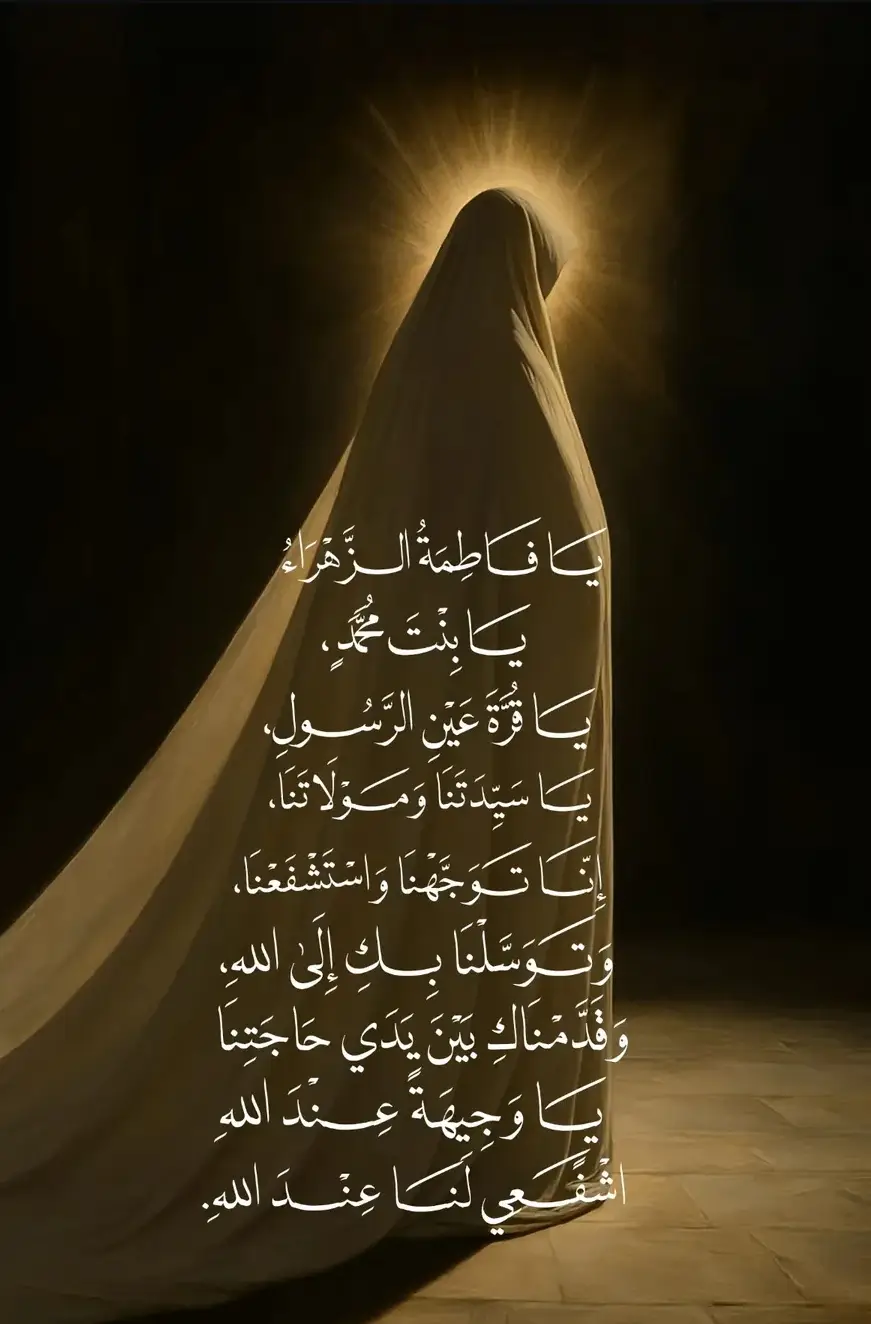 يَا فَاطِمَةُ الزَّهْرَاءُ
يَا بِنْتَ مُحَمَّدٍ،
يَا قُرَّةَ عَيْنِ الرَّسُولِ،
يَا سَيِّدَتَنَا وَمَوْلَاتَنَا،
إِنَّا تَوَجَّهْنَا وَاسْتَشْفَعْنَا،
وَتَوَسَّلْنَا بِكِ إِلَىٰ اللهِ،
وَقَدَّمْنَاكِ بَيْنَ يَدَي حَاجَتِنَا
يَا وَجِيهَةً عِنْدَ اللهِ
اشْفَعِي لَنَا عِنْدَ اللهِ.